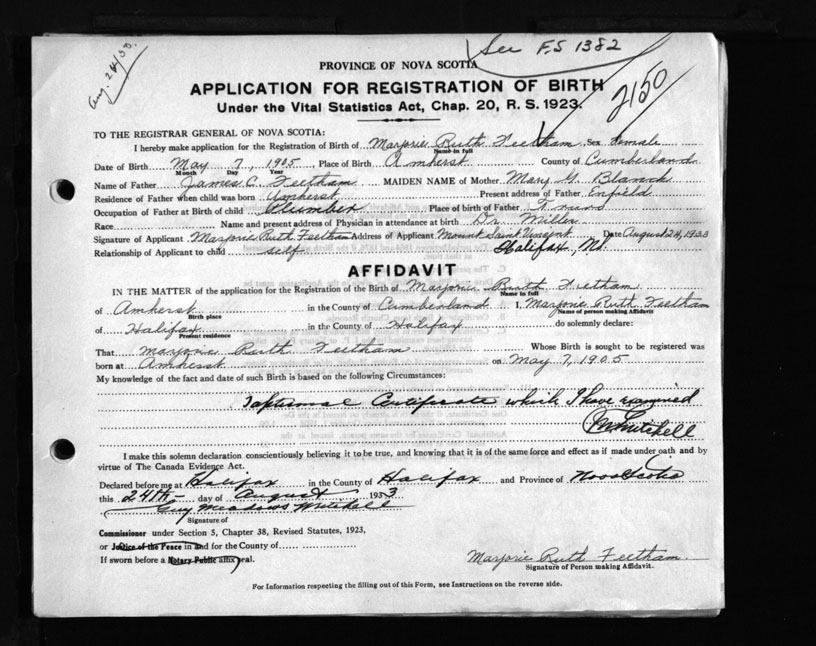 See F.S 1382
Aug. 24/33.
2150
PROVINCE OF NOVA SCOTIA
APPLICATION FOR REGISTRATION OF BIRTH
Under the Vital Statistics Act, Chap. 20, R. S. 1923.
TO THE REGISTRAR GENERAL OF NOVA SCOTIA:
I hereby make application for the Registration of Birth of Marjorie Ruth Feetham Sex Female
Name in full
Date of Birth May 7, 1905 Place of Birth Amherst County of Cumberland
Month Day Year
Name of Father James C. Feetham MAIDEN NAME of Mother Mary G. Blanch
Residence of Father when child was born Amherst Present address of Father Enfield
Occupation of Father at Birth of child Plumber Place of birth of Father Truro
Race Name and present address of Physician in attendance at birth Dr. Miller
Signature of Applicant Marjorie Ruth Feetham Address of Applicant Mount Saint Vincent Date August 24, 1933
Relationship of Applicant to child self Halifax, N.S.
AFFIDAVIT
IN THE MATTER of the application for the Registration of the Birth of Marjorie Ruth Feetham
Name in full
of Amherst in the County of Cumberland I, Marjorie Ruth Feetham
Birth place Name of person making Affidavit
of Halifax in the County of Halifax do solemnly declare:
Present residence
That Marjorie Ruth Feetham Whose Birth is sought to be registered was
born at Amherst on May 7, 1905
My knowledge of the fact and date of such Birth is based on the following Circumstances:
Baptismal Certificate which I have examined
Mitchell
I make this solemn declaration conscientiously believing it to be true, and knowing that it is of the same force and effect as if made under oath and by
virtue of The Canada Evidence Act.
Declared before me at Halifax in the County of Halifax and Province of Nova Scotia
this 24th day of August 1933
Guy Meadows Mitchell
Signature of
Commissioner under Section 5, Chapter 38, Revised Statutes, 1923,
or Justice of the Peace in and for the County of
If sworn before a Notary Public affix seal.
Marjorie Ruth Feetham.
Signature of Person making Affidavit.
For Information respecting the filling out of this Form, see Instructions on the reverse side.